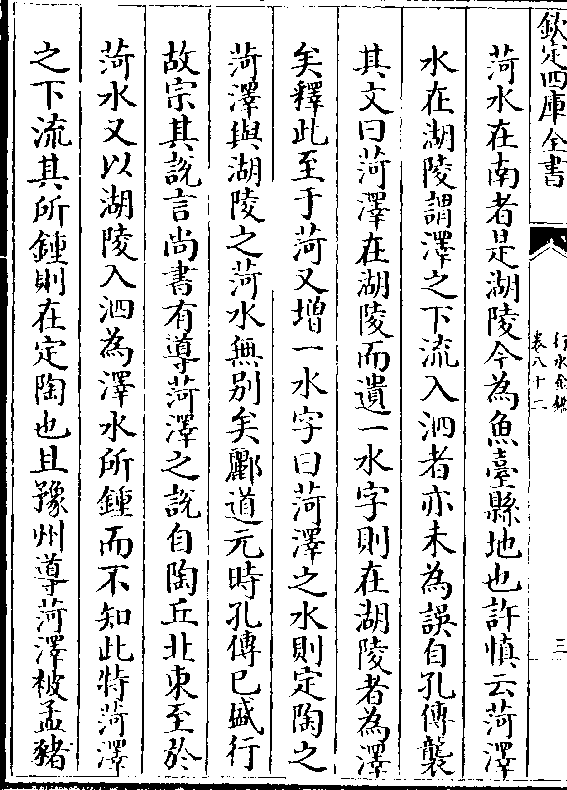 欽定四庫全書
行水金鑑
卷八十二
三
菏水在南者是湖陵今為魚臺縣地也許慎云菏澤
水在湖陵謂澤之下流入泗者亦未為誤自孔傳襲
其文曰菏澤在湖陵而遺一水字則在湖陵者為澤
矣釋此至于菏又增一水字曰菏澤之水則定陶之
菏澤與湖陵之菏水無别矣酈道元時孔傳已盛行
故宗其説言尚書有導菏澤之説自陶丘北東至於
菏水又以湖陵入泗為澤水所鍾而不知此特菏澤
之下流其所鍾則在定陶也且豫州導菏澤被孟豬